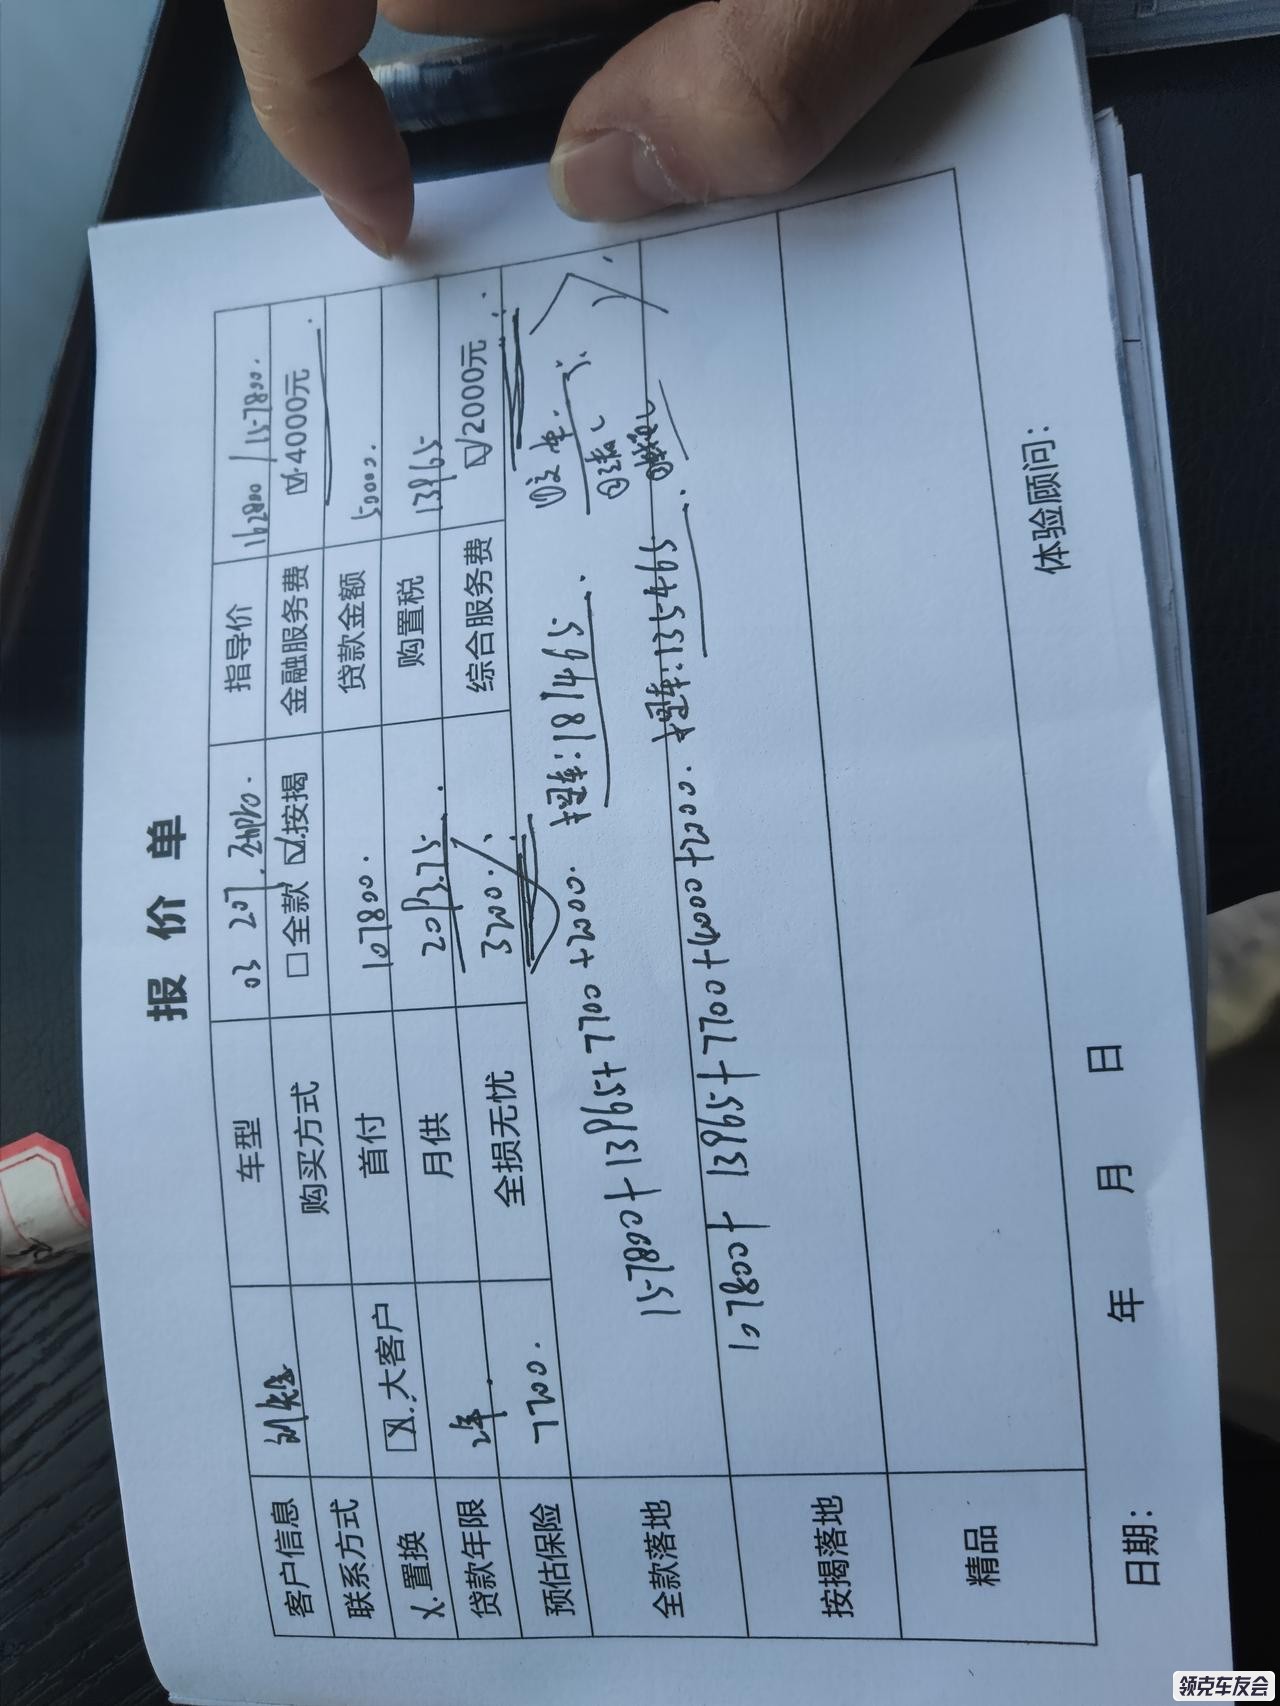 报价单
客户信息 车型 03 207 指导价 162800/157800.
联系方式 购买方式 □全款 ☑按揭 金融服务费 ☑4000元
X.置换 ☒.大客户 首付 107800. 贷款金额 50000.
贷款年限 2年 月供 购置税 13965
预估保险 7700. 全损无忧 3200. 综合服务费 ☑2000元
全款落地 157800+13965+7700+2000. 提车:181465.
按揭落地 107800+13965+7700+4000+2000. 提车:135465.
精品
日期: 年 月 日 体验顾问:
领克车友会